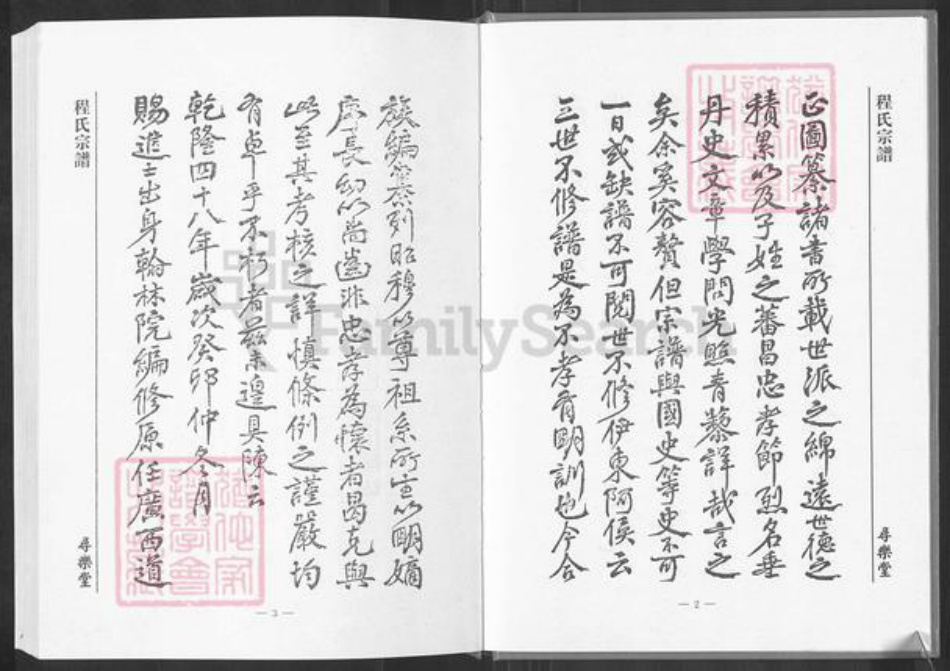 程氏宗譜
正圖纂諸書所載世派之綿遠世德之
積累以及子姓之蕃昌忠孝節烈名垂
丹史文章學問光照青藜詳哉言之
矣余奚容贅但宗譜與國史等史不可
一日或缺譜不可閱世不修伊東阿侯云
三世不修譜是為不孝有明訓也今合
尋樂堂
— 2 —
族編纂列昭穆以尊祖系所生以明嫡
庶長幼以尚齒非忠孝為懷者曷克與
此至其考核之詳慎條例之謹嚴均
有卓乎不朽者茲未遑具陳云
乾隆四十八年歲次癸卯仲冬月
賜進士出身翰林院編修原任廣西道
程氏宗譜
尋樂堂
— 3 —
FamilySearch